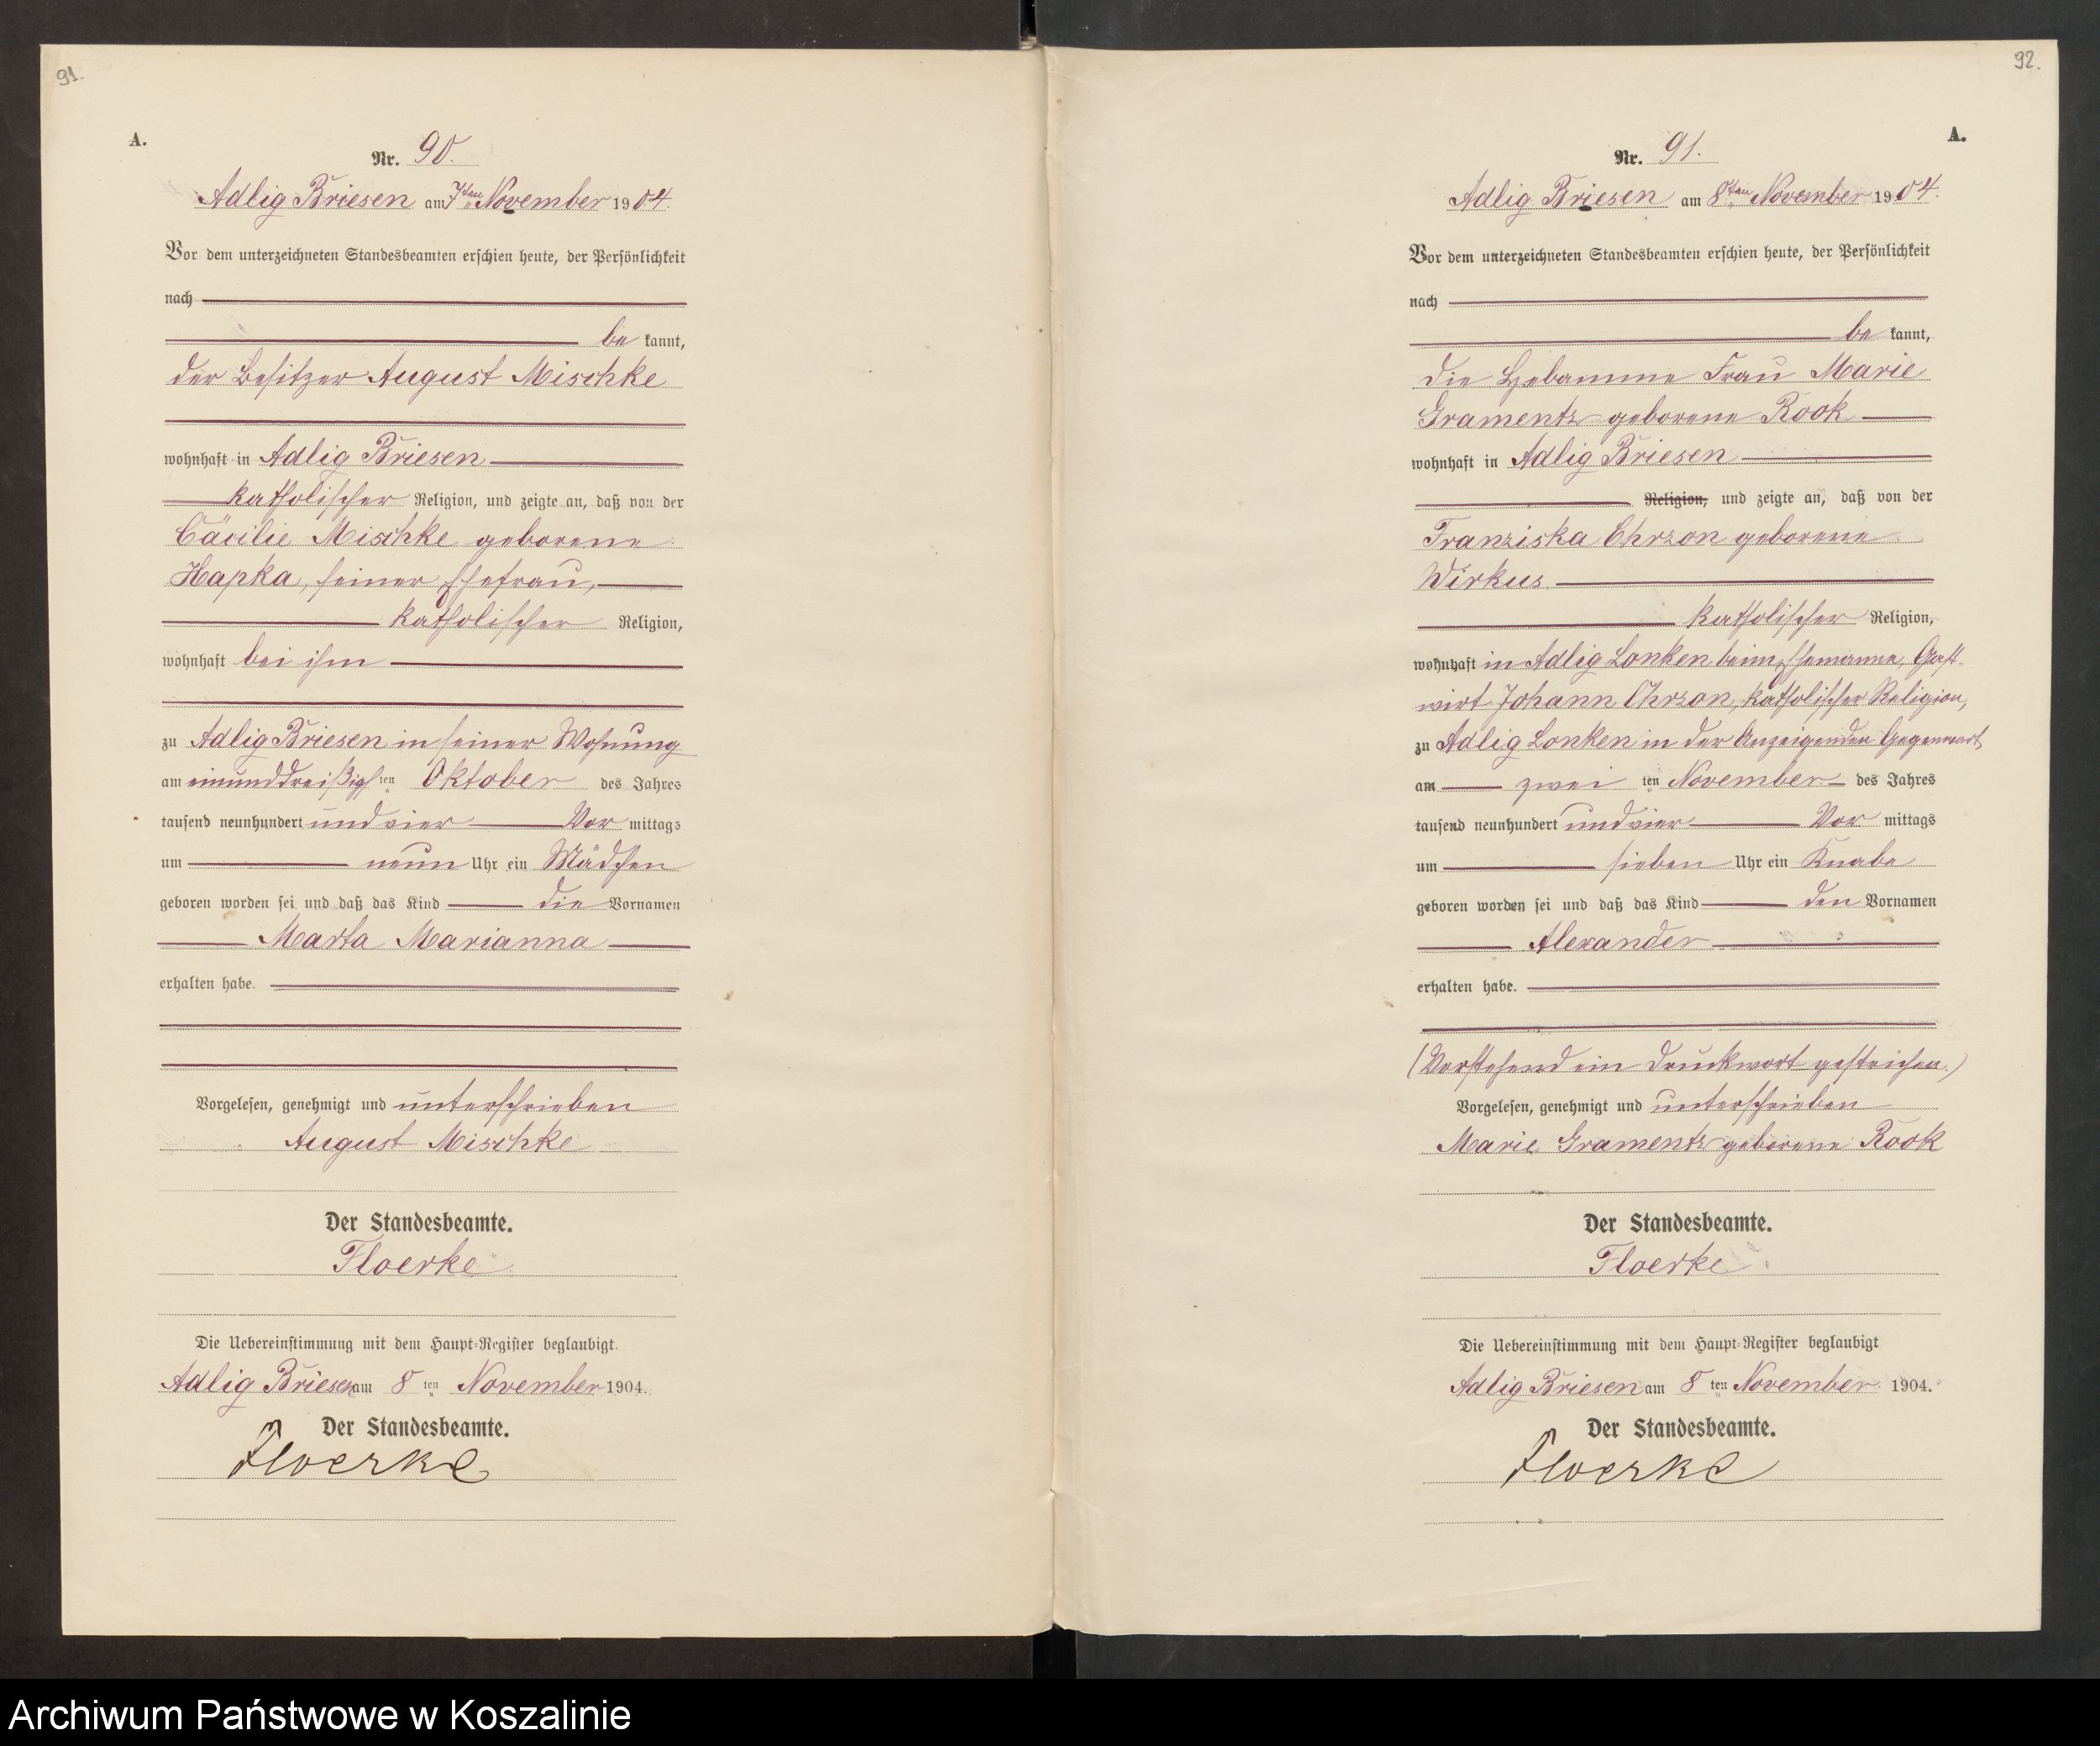 91.
A.
Nr. 90.
Adlig Briesen am 7ten November 1904.
Vor dem unterzeichneten Standesbeamten erschien heute, der Persönlichkeit
nach
be kannt,
der Besitzer August Mischke
wohnhaft in Adlig Briesen
katholischer Religion, und zeigte an, daß von der
Cäcilie Mischke geborene
Hapka, seiner Ehefrau,
katholischer Religion,
wohnhaft bei ihm
zu Adlig Briesen in seiner Wohnung
am einunddreißigsten Oktober des Jahres
tausend neunhundert und vier Vor mittags
um neun Uhr ein Mädchen
geboren worden sei und daß das Kind die Vornamen
Marta Marianna
erhalten habe.
Vorgelesen, genehmigt und unterschrieben
August Mischke
Der Standesbeamte.
Floerke
Die Uebereinstimmung mit dem Haupt-Register beglaubigt.
Adlig Briesen am 8ten November 1904.
Der Standesbeamte.
Floerke
92.
A.
Nr. 91.
Adlig Briesen am 8ten November 1904.
Vor dem unterzeichneten Standesbeamten erschien heute, der Persönlichkeit
nach
be kannt,
die Hebamme Frau Marie
Gramentz geborene Rook
wohnhaft in Adlig Briesen
Religion, und zeigte an, daß von der
Franziska Chrzon geborene
Wirkus
katholischer Religion,
wohnhaft in Adlig Lonken beim Ehemanne, Gast-
wirt Johann Chrzon, katholischer Religion,
zu Adlig Lonken in der Anzeigenden Gegenwart
am zwei ten November des Jahres
tausend neunhundert und vier Vor mittags
um sieben Uhr ein Knabe
geboren worden sei und daß das Kind den Vornamen
Alexander
erhalten habe.
(Vorstehend ein Druckwort gestrichen.)
Vorgelesen, genehmigt und unterschrieben
Marie Gramentz geborene Rook
Der Standesbeamte.
Floerke
Die Uebereinstimmung mit dem Haupt-Register beglaubigt
Adlig Briesen am 8ten November 1904.
Der Standesbeamte.
Floerke
Archiwum Państwowe w Koszalinie